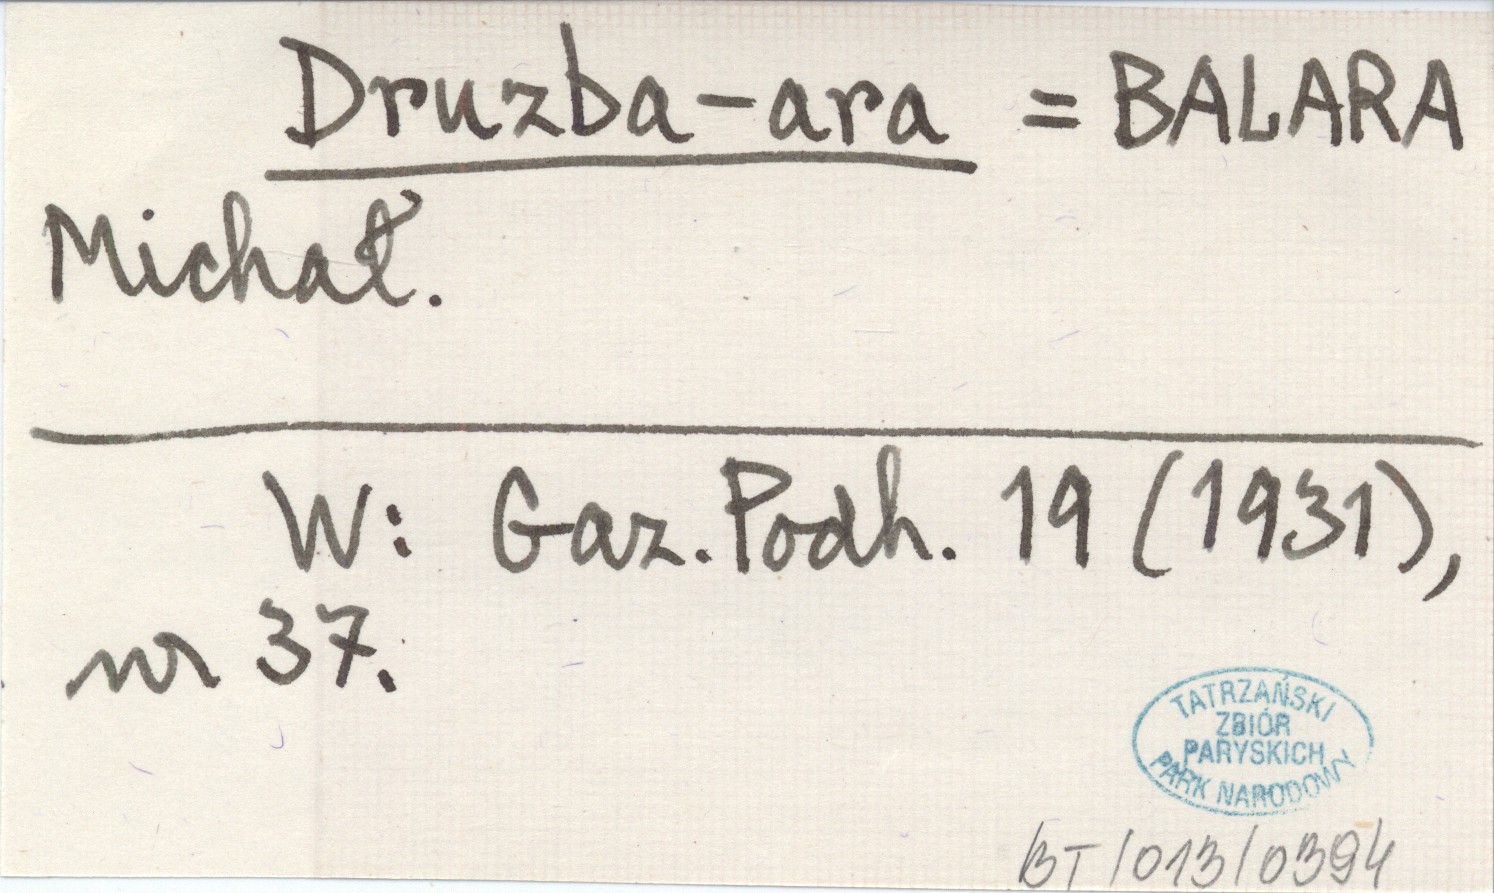 Druzba-ara = BALARA
Michał.
W: Gaz. Podh. 19 (1931),
nr 37.
TATRZAŃSKI
ZBIÓR
PARYSKICH
PARK NARODOWY
BT/013/0394